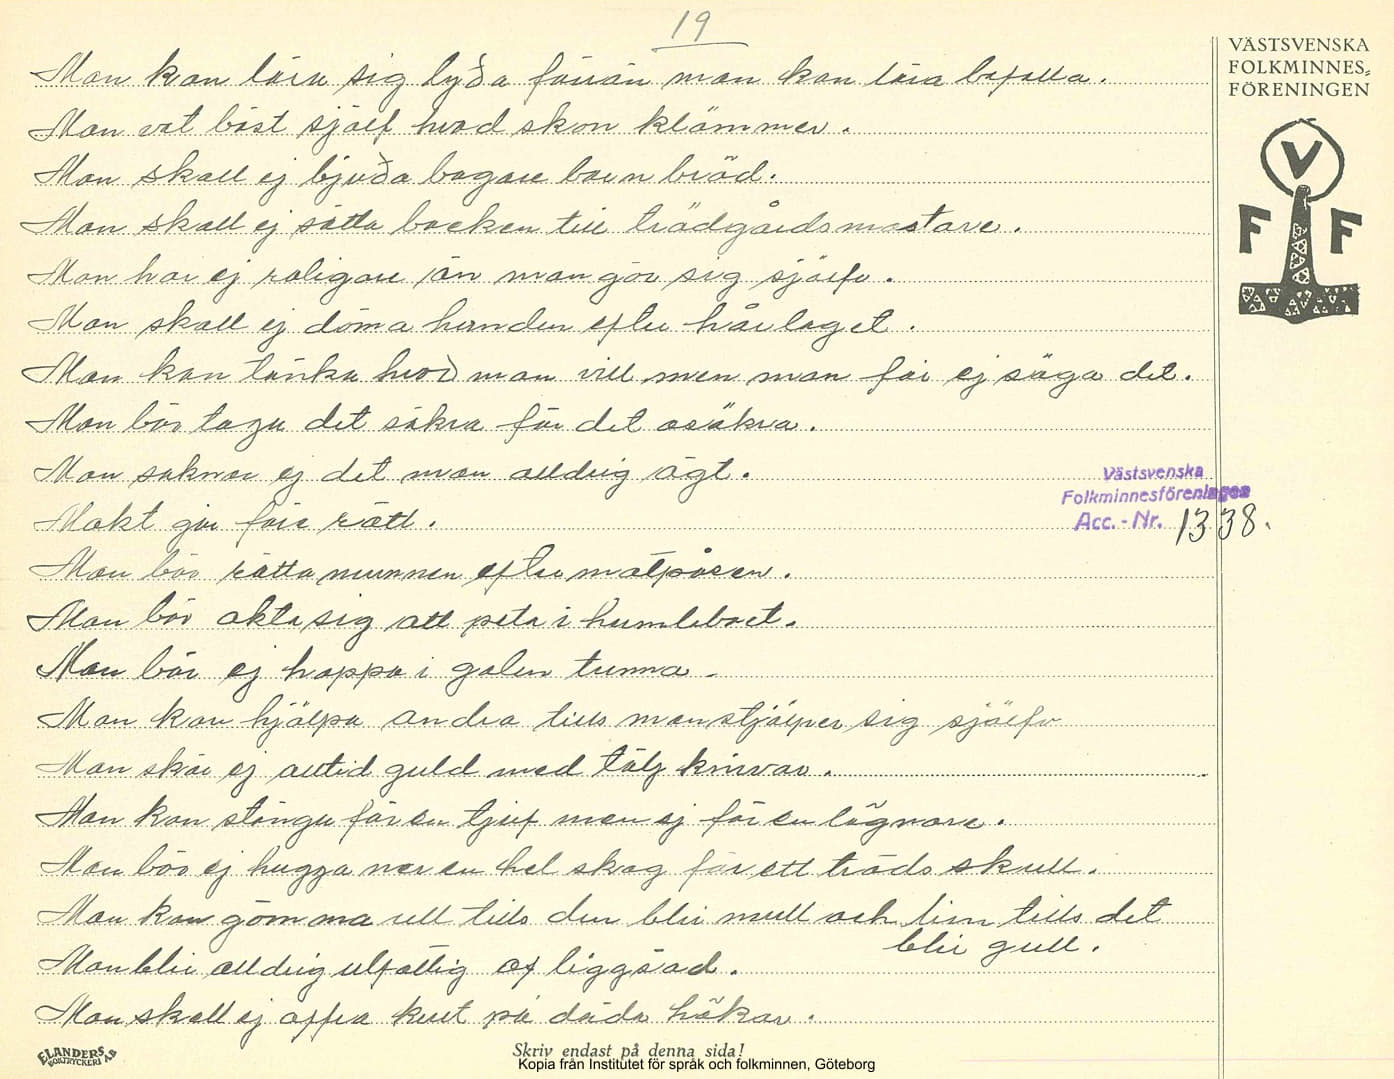 19
VÄSTSVENSKA
FOLKMINNES=
FÖRENINGEN
V
F F
Man kan lära sig lyda förrän man kan lära befalla.
Man vet bäst sjelf hvad skon klämmer.
Man skall ej bjuda bagare barn bröd.
Man skall ej sätta bocken till trädgårdsmästare.
Man har ej roligare än man gör sig sjelfv.
Man skall ej döma hunden efter hårlaget.
Man kan tänka hvad man vill men man får ej säga det.
Man bör taga det säkra för det osäkra.
Man saknar ej det man alldrig ägt.
Makt går före rätt.
Man bör rätta munnen efter matpåsen.
Man bör akta sig att peta i humleboet.
Man bör ej hoppa i galen tunna.
Man kan hjälpa andra tills man stjälper sig själfv
Man skär ej alltid guld med tälj knivar.
Man kan stänga för en tjuf men ej för en lögnare.
Man bör ej hugga ner en hel skog för ett träds skull.
Man kan gömma ull tills den blir mull och lin tills det
blir gull.
Man blir alldrig utfattig af liggsäd.
Man skall ej offra krut på döda hökar.
Västsvenska
Folkminnesföreningen
Acc.-Nr. 1338.
ELANDERS
BOKTRYCKERI AB
Skriv endast på denna sida!
Kopia från Institutet för språk och folkminnen, Göteborg